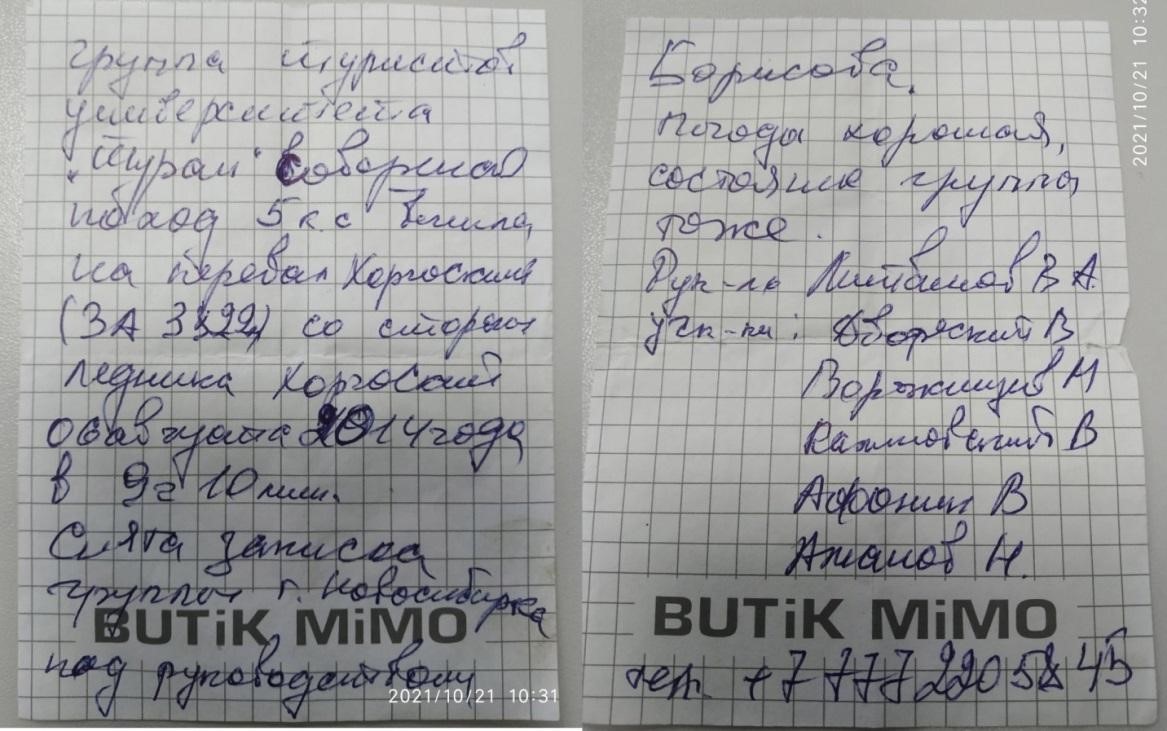 группа туристов
университета
"Туран" совершив
поход 5 к.с
на перевал Хоргоский
(3А 3822) со стороны
ледника Хоргоский
06 августа 2014 года
в 9ч 10 мин.
Снята записка
группы г. Новосибирска
BUTiK MiMO
под руководством
2021/10/21 10:31
Борисова.
Погода хорошая,
состояние группы
тоже.
Рук-ль Литвинов В А.
уч-ки: Дворяский В
Ворожищев Н
Калиновский В
Афонин В
Ажанов Н.
BUTiK MiMO
тел. +7 777 220 58 45
2021/10/21 10:32